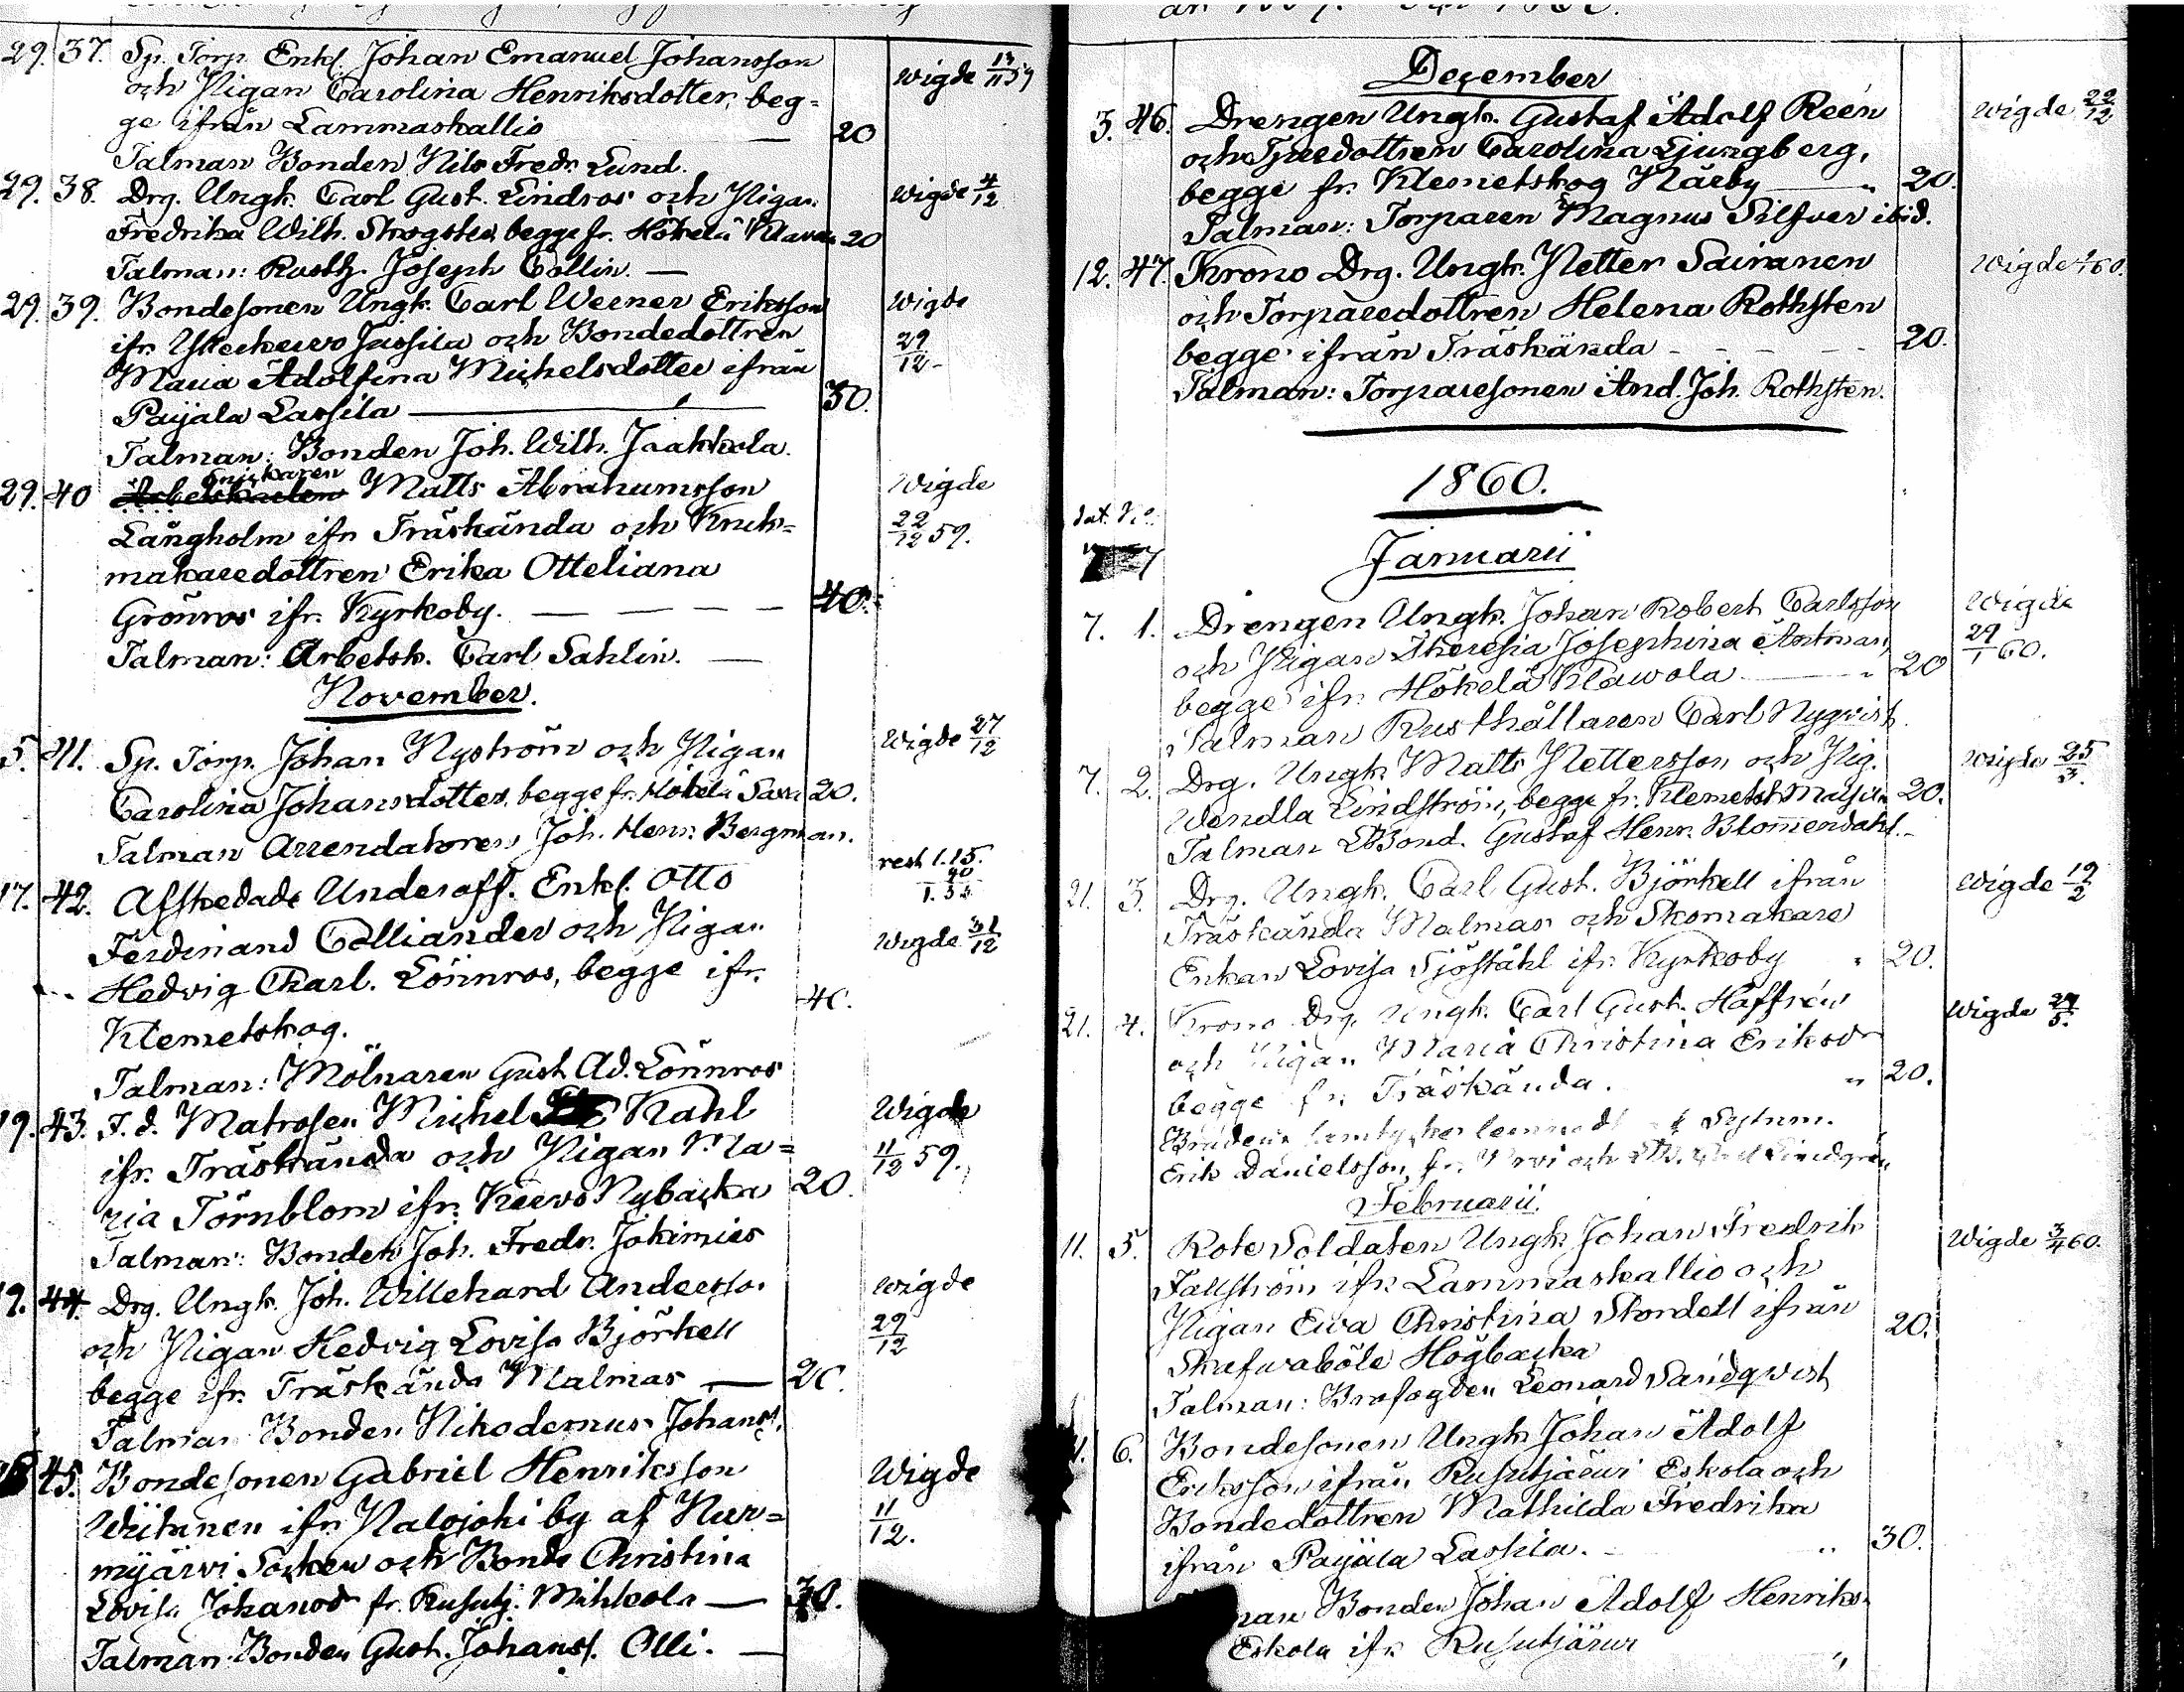 29. 37. Sp. Torp. Enkl. Johan Emanuel Johansson
och Pigan Carolina Henriksdotter, beg=
ge ifrån Lammaskallio — 20
Wigde 13/11 59
Talman Bonden Nils Fredr. Lund.
29. 38. Drg. Ungk. Carl Gust. Lindros och Pigan
Fredrika Wilh. Skogster, begge fr. Hökelä Klawola 20
Wigde 4/12
Talman: Rusth. Joseph Collin. —
29. 39. Bondesonen Ungk. Carl Werner Eriksson
ifr. Jussila och Bondedottren
Maria Adolfina Michelsdotter ifrån
Paijala Lassila — 30.
Wigde
29/12
Talman: Bonden Joh. Wilh. Jaakkola.
Snickaren
29. 40 Matts Abrahamsson
Långholm ifr. Träskända och Kruk=
makaredottren Erika Otteliana
Grönros ifr. Kyrkoby. — — — — 40.
Wigde
22/12 59.
Talman: Arbetsk. Carl Sahlin. —
November.
5. 41. Sp. Torp. Johan Nyström och Pigan
Carolina Johansdotter, begge fr. Hökelä 20.
Wigde 27/12
Talman Arrendatoren Joh. Henr. Bergman.
rest 1.15.
17. 42. Afskedade Underoff. Enkl. Otto
Ferdinand Colliander och Pigan
Hedvig Charl. Lönnros, begge ifr.
Klemetskog. 40.
Wigde 31/12
Talman: Mölnaren Gust. Ad. Lönnros
19. 43. F.d. Matrosen Michel Kahl
ifr. Träskända och Pigan Ma=
ria Törnblom ifr. Kerwo Nybacka 20.
Wigde
11/12 59.
Talman: Bonden Joh. Fredr. Jokimies
19. 44. Drg. Ungk. Joh. Willehard Andersson
och Pigan Hedvig Lovisa Björkell
begge ifr. Träskända Malmas — 20.
Wigde
29/12
Talman Bonden Nikodemus Johanss.
45. Bondesonen Gabriel Henriksson
Wiitanen ifr. Palojoki by af Nur=
mijärvi Socken och Bonde Christina
Lovisa Johansdr fr. Rusutj. Mikkola — 30.
Wigde
11/12.
Talman Bonden Gust. Johanss. Olli. —
December
3. 46. Drengen Ungk. Gustaf Adolf Reén
och Carolina Ljungberg,
begge fr. Klemetskog Närby — " 20.
Wigde 22/12
Talman: Torparen Magnus Silfver ibid.
12. 47. Krono Drg. Ungk. Petter Sairanen
och Torparedottren Helena Rothsten
begge ifrån Träskända - - - - - 20.
Wigde 60.
Talman: Torparesonen And. Joh. Rothsten.
1860.
dat. No.
Januarii
7. 1. Drengen Ungk. Johan Robert Carlsson
och Pigan Theresia Josephina Antman,
begge ifr. Hökelä Klawola — " 20
Wigde
29/1 60.
Talman Rusthållaren Carl Nyqvist.
7. 2. Drg. Ungk. Matts Pettersson och Pig.
Wendla Lindström, begge fr. Klemetsk. 20.
Wigde 25/3.
Talman Bond. Gustaf Henr. Blommendahl. -
21. 3. Drg. Ungk. Carl Gust. Björkell ifrån
Träskända Malmas och Skomakare
Enkan Lovisa Sjöståhl ifr. Kyrkoby " 20.
Wigde 19/2
21. 4. Krono Drg. Ungk. Carl Gust. Haffrén
och Pigan Maria Christina Eriksdr
begge fr. Träskända. " 20.
Wigde 29/5.
Brudens
Erik Danielsson, fr. och
Februarii.
11. 5. Rote Soldaten Ungk. Johan Fredrik
Fallström ifr. Lammaskallio och
Pigan Ewa Christina Skondell ifrån
Skafwaböle Högbacka 20.
Wigde 3/4 60.
Talman: Brofogden Leonard Sandqwist
6. Bondesonen Ungk. Johan Adolf
Eriksson ifrån Rusutjärwi Eskola och
Bondedottren Mathilda Fredrika
ifrån Paijala Lassila. - " 30.
Bonden Johan Adolf Henriks.
Eskola ifr. Rusutjärwi "